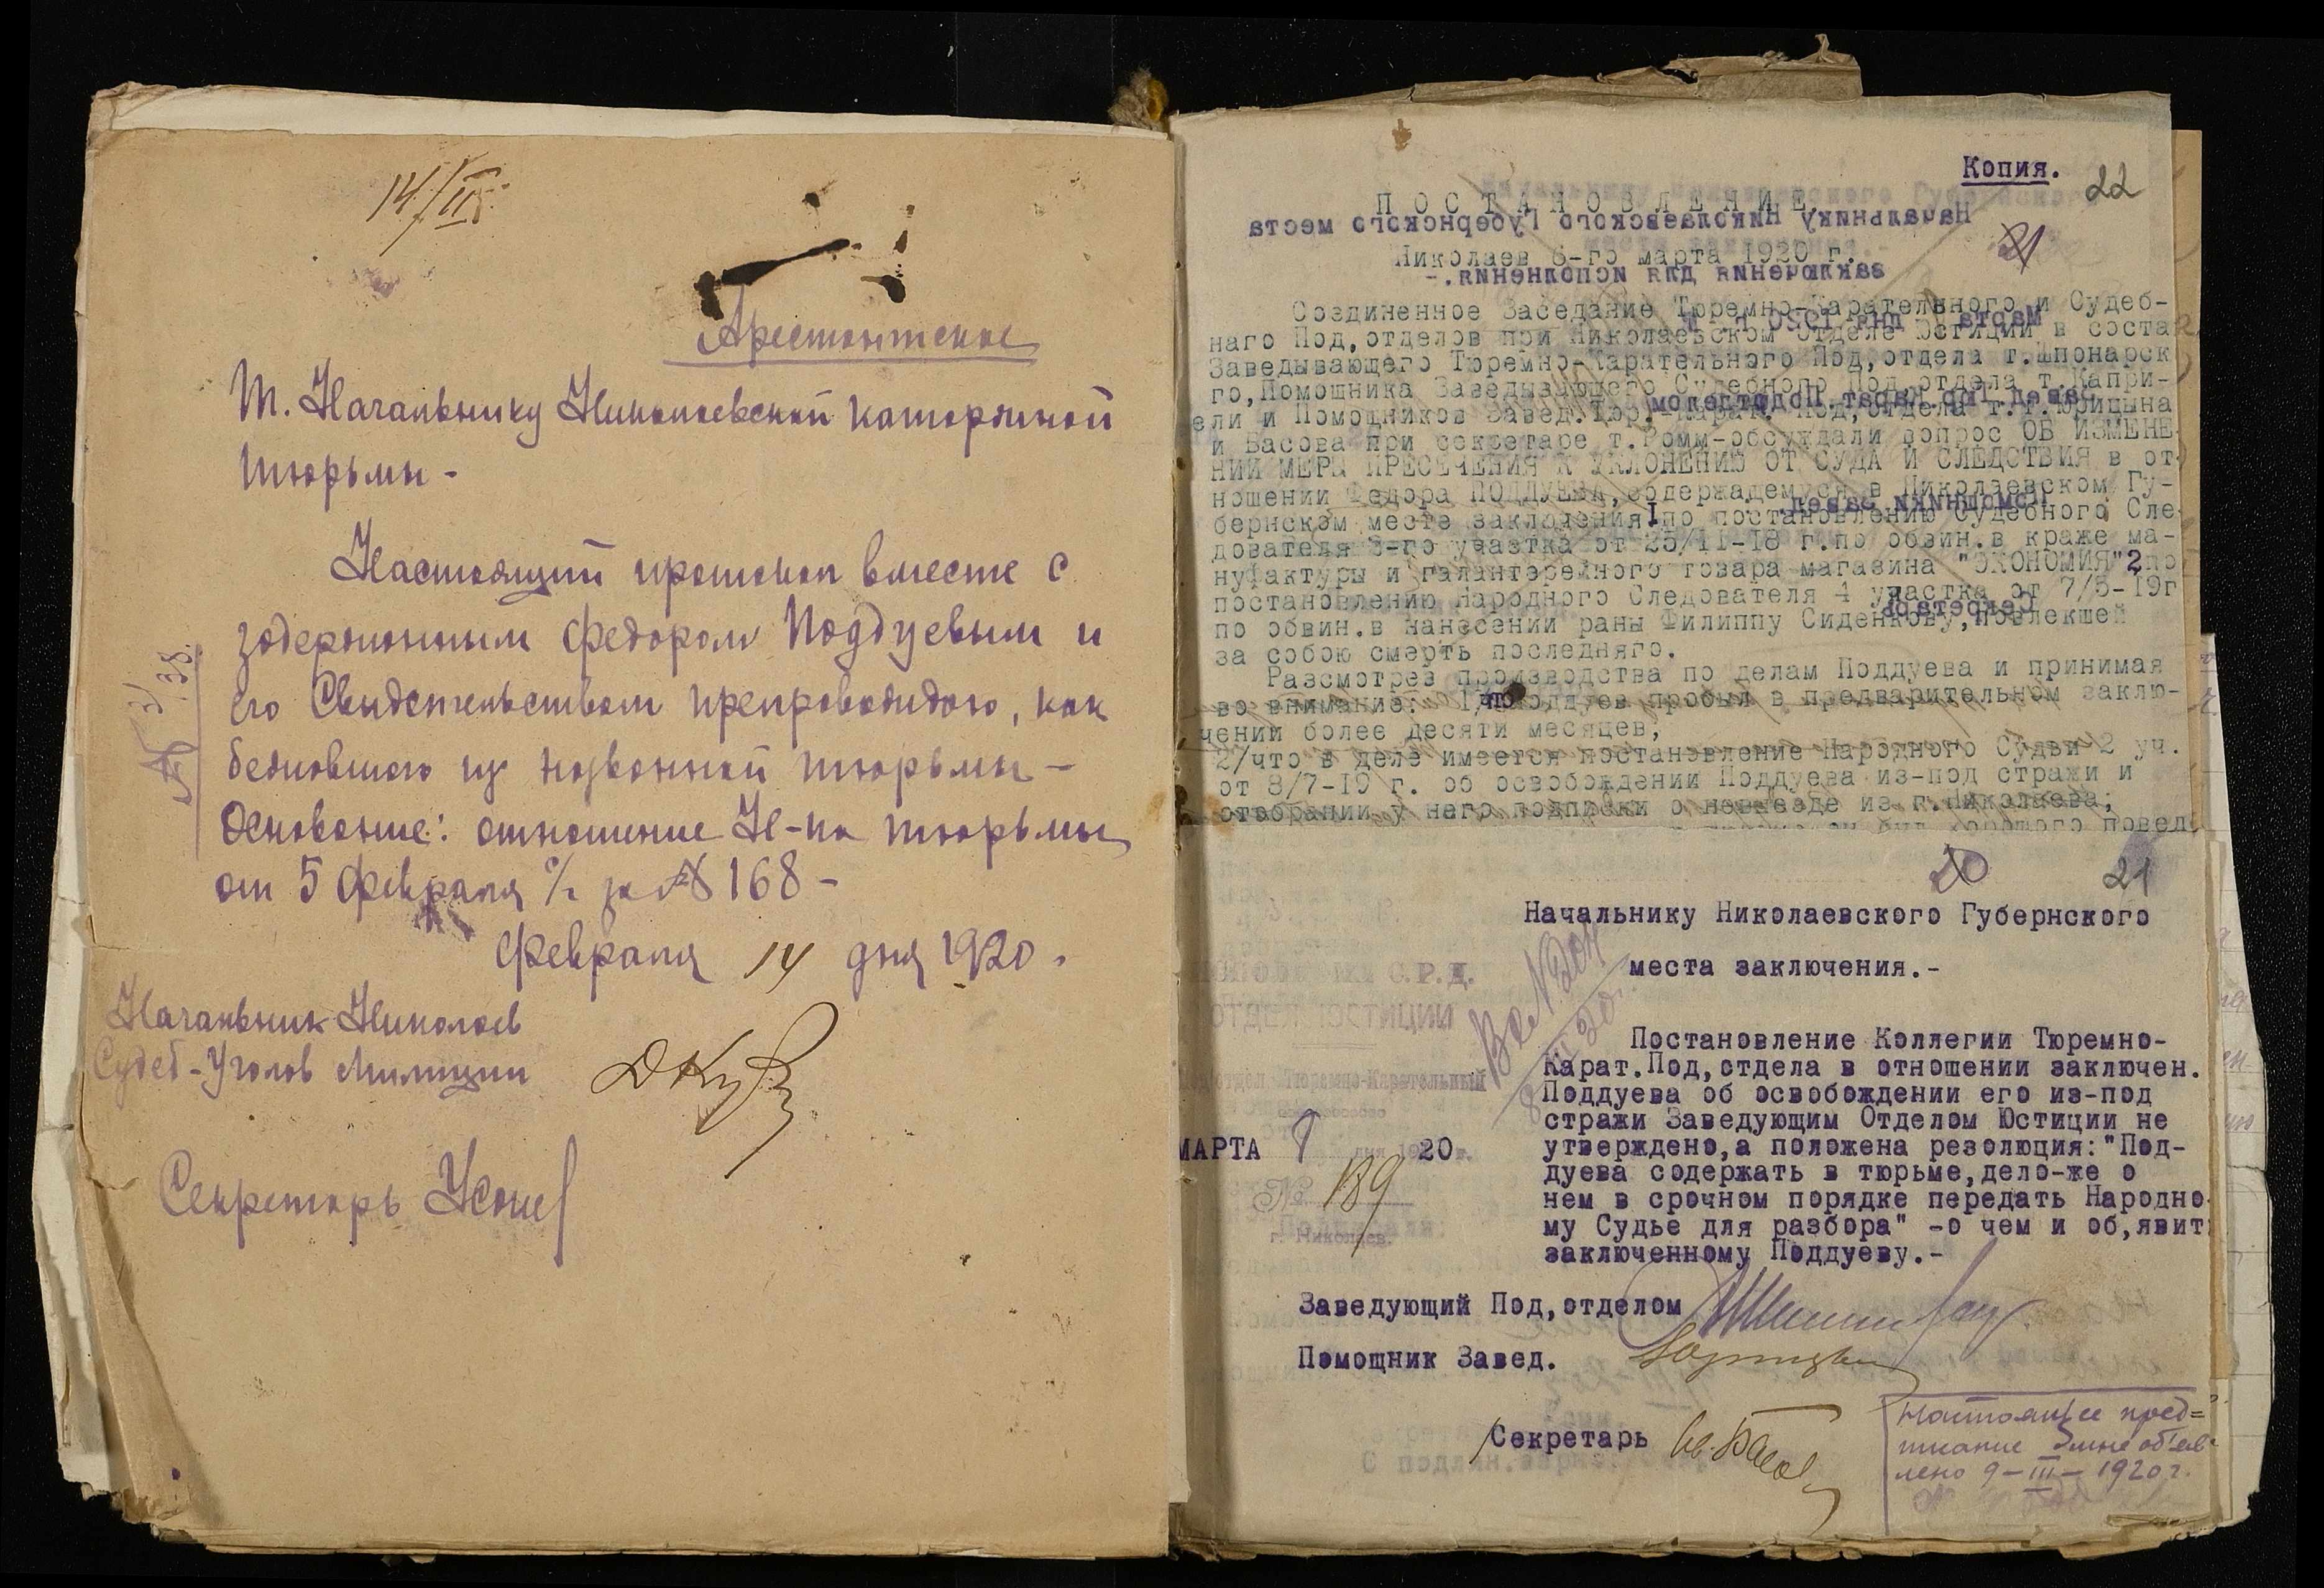 14/II
Арестантское
Т. Начальнику Николаевской каторжной
тюрьмы -
Настоящий протокол вместе с
задержанным Федором Поддуевым и
его Свидетельством препровождаю, как
бежавшего из названной тюрьмы -
Основание: отношение Н-ка тюрьмы
от 5 февраля с/г за № 168 -
Февраля 14 дня 1920.
Начальник Николаев
Судеб-Уголов Милиции
Секретарь
Копия.
22
21
ПОСТАНОВЛЕНИЕ.
Начальнику Николаевского Губернского места
Николаев 8-го марта 1920 г.
заключения для исполнения.-
Соединенное Заседание Тюремно-Карательного и Судеб-
наго Под,отделов при Николаевском Отделе Юстиции в соста
Заведывающего Тюремно-Карательного Под,отдела т.Шпонарск
го,Помощника Заведывающего Судебного Под,отдела т.Капри-
ели и Помощников Завед.Тюр. Карат. Под,отдела т.т.Юрицына
и Басова при секретаре т.Ромм-обсуждали вопрос ОБ ИЗМЕНЕ
НИИ МЕРЫ ПРЕСЕЧЕНИЯ К УКЛОНЕНИЮ ОТ СУДА И СЛЕДСТВИЯ в от
ношении Федора ПОДДУЕВА,содержащемуся в Николаевском Гу-
бернском месте заключения 1 по постановлению Судебного Сле
дователя 3-го участка от 25/11-18 г.по обвин.в краже ма-
нуфактуры и галантерейного товара магазина "ЭКОНОМИЯ" 2 по
постановлению Народного Следователя 4 участка от 7/5-19г
по обвин.в нанесении раны Филиппу Сиденкову,повлекшей
за собою смерть последняго.
Разсмотрев производства по делам Поддуева и принимая
во внимание: 1/что Поддуев пробыл в предварительном заклю-
чении более десяти месяцев;
2/что в деле имеется постановление Народного Судьи 2 уч.
от 8/7-19 г. об освобождении Поддуева из-под стражи и
отобрании у него подписки о невыезде из г.Николаева;
20
21
Начальнику Николаевского Губернского
места заключения.-
С.Р.Д.
ОТДЕЛ ЮСТИЦИИ
отдел Тюремно-Карательный
МАРТА 9 дня 1920 г.
№ 189
г. Николаев.
Постановление Коллегии Тюремно-
Карат.Под,отдела в отношении заключен.
Поддуева об освобождении его из-под
стражи Заведующим Отделом Юстиции не
утверждено,а положена резолюция:"Под-
дуева содержать в тюрьме,дело-же о
нем в срочном порядке передать Народно
му Судье для разбора" -о чем и об,явит
заключенному Поддуеву.-
Заведующий Под,отделом
Помощник Завед.
Секретарь Ив.Басов
Настоящее пред=
писание мне об'яв
лено 9-III-1920г.